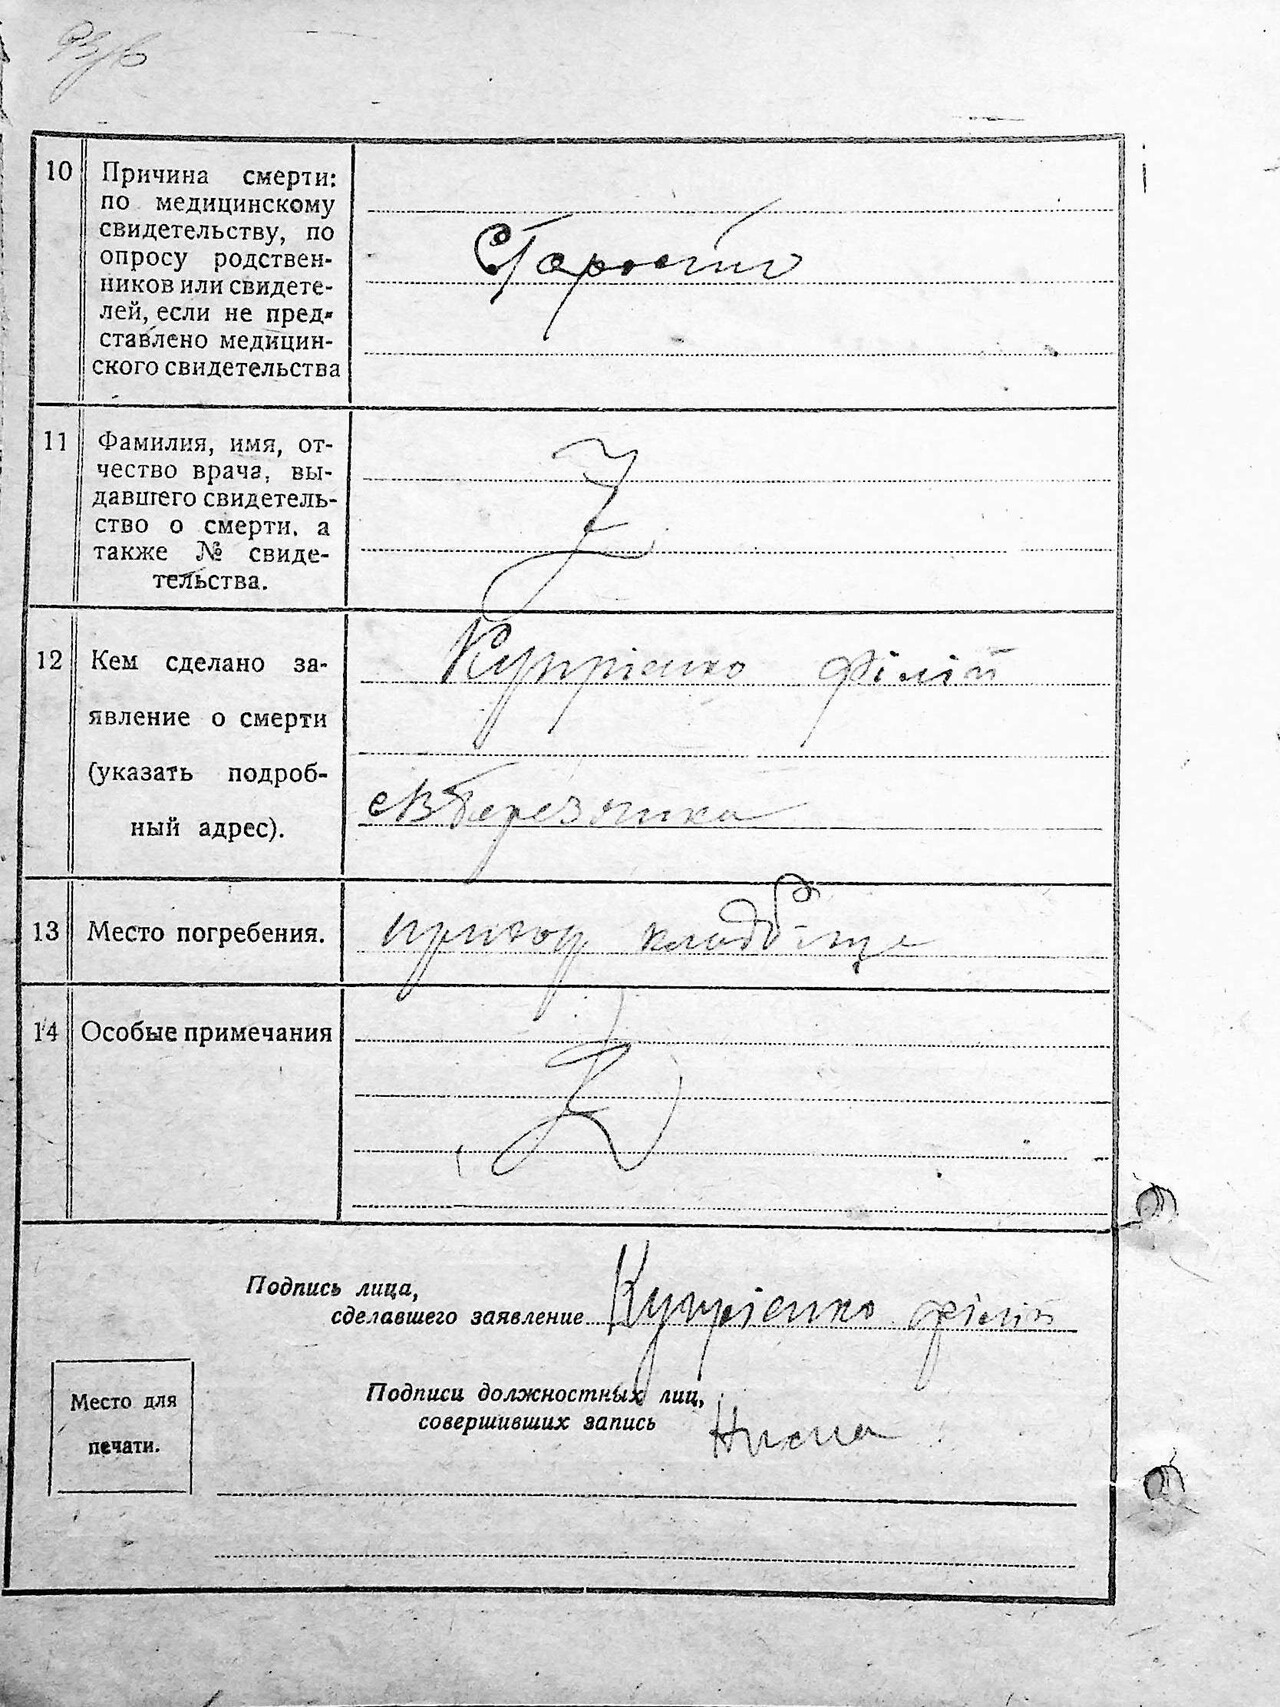 10 Причина смерти:
по медицинскому
свидетельству, по
опросу родствен-
ников или свидете-
лей, если не пред-
ставлено медицин-
ского свидетельства
Старость
11 Фамилия, имя, от-
чество врача, вы-
давшего свидетель-
ство о смерти, а
также № свиде-
тельства.
Z
12 Кем сделано за-
явление о смерти
(указать подроб-
ный адрес).
Купрієнко Філіп
13 Место погребения.
кладбіще
14 Особые примечания
Z
Подпись лица,
сделавшего заявление Купрієнко Філіп
Место для
печати.
Подписи должностных лиц,
совершивших запись